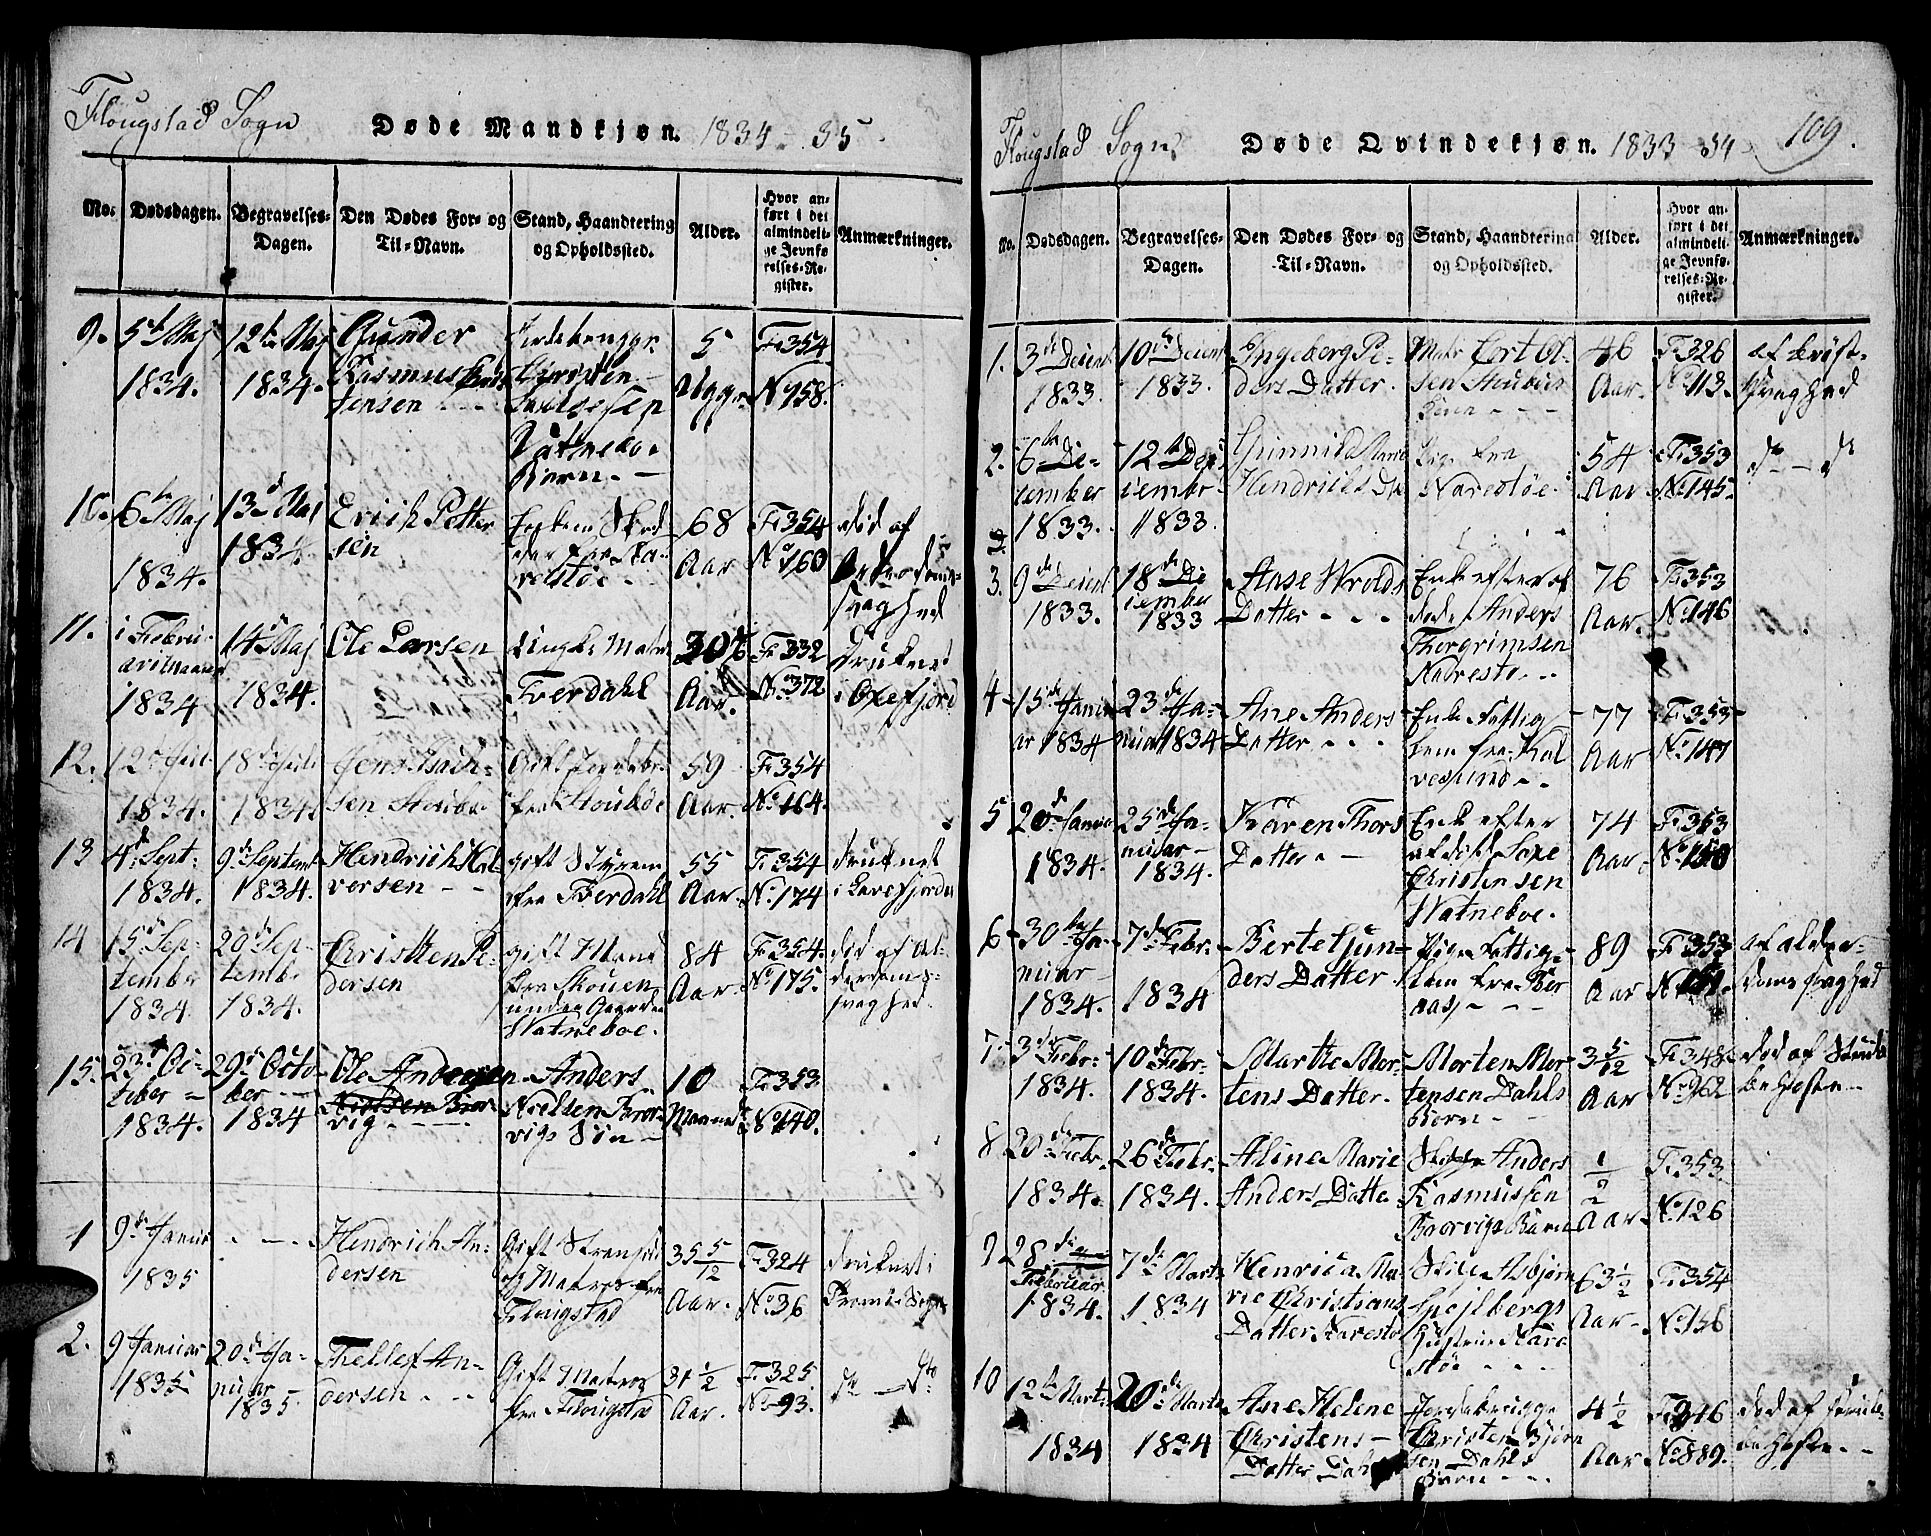 Flougstad Sogn
Døde Mandkjøn. 1834-35
No.
Dødsdagen.
Begravelses-Dagen.
Den Dødes For- og Til-Navn.
Stand, Haandtering og Opholdssted.
Alder.
Hvor anført i det almindelige Jevnførelses-Register.
Anmærkninger.
9. 5te Maj 1834. 12te Maj 1834. Gunder Rasmus Jensen Christen Watneboe Børn. 5 Uger Fr 354 No 158.
10. 6te Maj 1834. 13de Maj 1834. Erich Pettersen 68 Aar Fr 354 No 160 død af Alderdoms svaghed
11. i Februari 1834 14de Maj 1834. Ole Larsen Tverdahl Aar. Fr 332 No 372 druknet i Oxefjord
12. 12te 1834. 18de 1834. Jens Isachsen Stoubøe Gift fra Stoubøe 59 Aar. Fr 354 No 164.
13 4de Sept: 1834. 9de Septemb 1834. Hendrich Halversen gift fra Tverdahl 55 Aar. Fr 354 No 174 druknet i
14 15de September 1834. 20de Septemb. 1834. Christen Pedersen gift Mand fra Skouen under Gaarden Watneboe. 84 Aar. Fr 354. No 175. død af Alderdoms-svaghed.
15. 23de October 1834. 29de October 1834 Ole Andersen Nielsen Borvig Anders Nielsen Borvigs Søn 10 Maaned Fr 353. No 140.
1 9de Januar 1835 Hendrich Andersen Gift og Matros fra Flougstad 35 5/12 Aar. Fr 324 No 36 druknet i
2. 9 Januar 1835 20de Januar 1835. Thellef Andersen Gift Matros fra Flougstad 31 1/2 Aar. Fr 325. No 93. do — do
Flougstad Sogn
Døde Qvindekjøn. 1833-34
109.
No.
Dødsdagen.
Begravelses-Dagen.
Den Dødes For- og Til-Navn.
Stand, Haandtering og Opholdssted.
Alder.
Hvor anført i det almindelige Jevnførelses-Register.
Anmærkninger.
1. 3de Decemb 1833. 10de Decemb 1833. Ingeberg Peders Datter. Cort Olsen 46 Aar. Fr 326 No 113. af brøst-svaghed
2. 6te December 1833. 12te December 1833. Gunnild Marie Hendrichs Dtr Pige fra Narestøe. 54 Aar Fr 353 No 145. do — do
3. 9de Decemb 1833. 18de December 1833 Anse Wrolds Datter Enke efter afdøde Anders Thorgrimsen Narestø 76 Aar. Fr 353 No 146
4 15de Januar 1834 23de Januar 1834 Ane Anders Datter Enke Fattiglem fra Kalvesund 77 Aar Fr 353 No 147
5 20de Januar 1834. 25de Januar 1834. Karen Thors Datter Enke efter afdød Christensen Watneboe. 74 Aar Fr 353 No 150
6 30te Januar 1834. 7de Febr. 1834 Berte Gunders Datter Pige Fattiglem fra 89 Aar Fr 353 No af alderdoms svaghed
7. 3de Febr. 1834. 10de Febr. 1834. Marthe Mortens Datter Morten Mortensen Dahls Børn 3 5/12 Aar Fr 348 No 262 død af Strubehoste
8 20de Febr. 1834. 26de Febr. 1834. Aline Marie Anders Datter Anders Rasmussen Borvigs Barn 1/2 Aar Fr 353 No 126
9 28de Februar 1834. 7de Marts 1834 Henrica Marie Christians Datter Narestø Asbjørn Spejlbergs Hustru Narestøe 63 1/2 Aar Fr 354 No 156
10 12te Marts 1834 20de Marts 1834 Ane Helene Christens Datter Dahl Jordebrugger Christen Bjørnsen Dahls Børn 4 1/2 Aar Fr 346 No 889. død af strubehoste